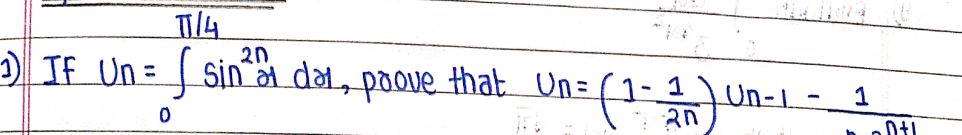 π/4
1) If Un = ∫ sin²ⁿx dx, prove that Un = (1 - 1/2n) Un-1 - 1/
0
n+1